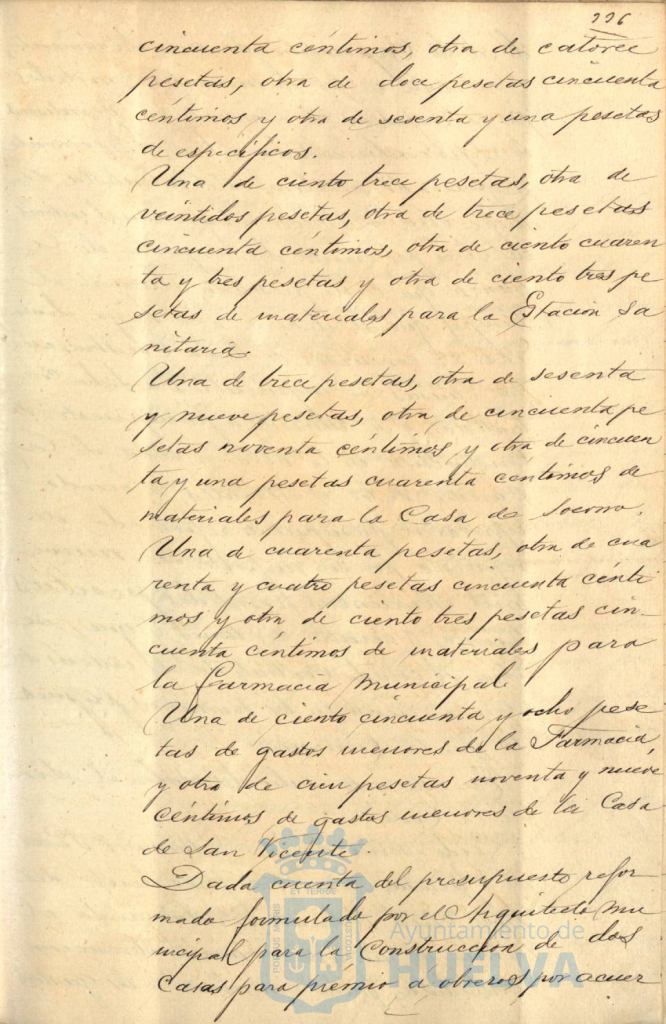 226
cincuenta céntimos, otra de catorce
pesetas, otra de doce pesetas cincuenta
céntimos y otra de sesenta y una pesetas
de específicos.
Una de ciento trece pesetas, otra de
veintidos pesetas, otra de trece pesetas
cincuenta céntimos, otra de ciento cuaren
ta y tres pesetas y otra de ciento tres pe
setas de materiales para la Estación Sa
nitaria.
Una de trece pesetas, otra de sesenta
y nueve pesetas, otra de cincuenta pe
setas noventa céntimos y otra de cincuen
ta y una pesetas cuarenta céntimos de
materiales para la Casa de Socorro.
Una de cuarenta pesetas, otra de cua
renta y cuatro pesetas cincuenta cénti
mos y otra de ciento tres pesetas cin-
cuenta céntimos de materiales para
la Farmacia Municipal.
Una de ciento cincuenta y ocho pese
tas de gastos menores de la Farmacia,
y otra de cien pesetas noventa y nueve
céntimos de gastos menores de la Casa
de San Vicente.
Dada cuenta del presupuesto refor
mado formulado por el Arquitecto Mu
nicipal para la Construcción de dos
Casas para premio a obreros por acuer
Ayuntamiento de
HUELVA